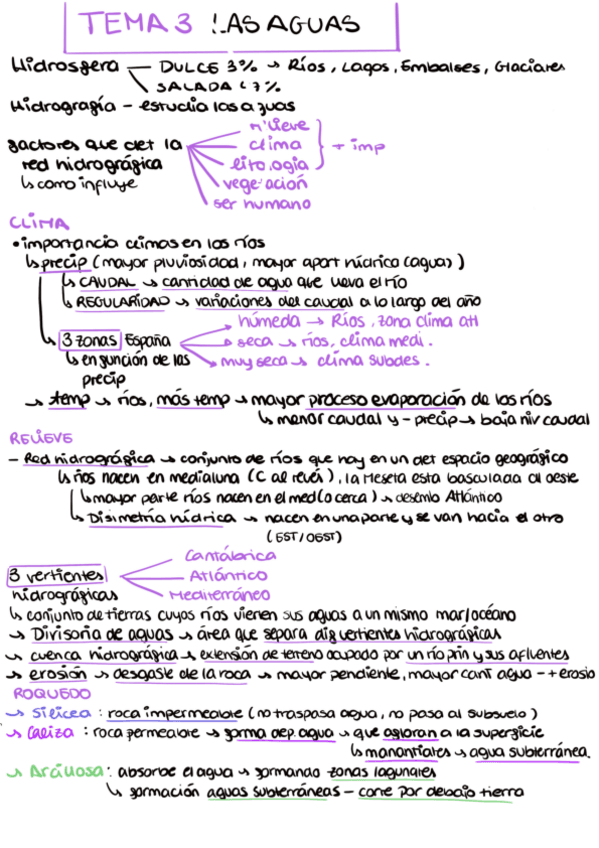 TEMA 3 : LAS AGUAS
Hidrosfera — DULCE 3% → Ríos, Lagos, Embalses, Glaciares
SALADA 97%
Hidrografía - estudia las aguas
factores que det la red hidrográfica
↳ como influye
relieve
clima
litología
+ imp
vegetación
ser humano
CLIMA
• importancia climas en los ríos
↳ precip (mayor pluviosidad, mayor aport hídrica (agua))
↳ CAUDAL → cantidad de agua que lleva el río
↳ REGULARIDAD → variaciones del caudal a lo largo del año
↳ 3 zonas España
↳ en función de las precip
húmeda → Ríos, zona clima atl
seca → ríos, clima medi.
muy seca → clima subdes.
→ temp → ríos, más temp → mayor proceso evaporación de los ríos
↳ menor caudal y - precip → baja niv caudal
RELIEVE
- Red hidrográfica → conjunto de ríos que hay en un det espacio geográfico
↳ ríos nacen en medialuna (C al revés), la Meseta esta basculada al oeste
↳ mayor parte ríos nacen en el med (o cerca) → desemb Atlántico
↳ Disimetría hídrica → nacen en una parte y se van hacia el otro
(EST/OEST)
3 vertientes hidrográficas
Cantábrica
Atlántico
Mediterráneo
↳ conjunto de tierras cuyos ríos vienen sus aguas a un mismo mar/océano
→ Divisoria de aguas → área que separa dif vertientes hidrográficas
→ cuenca hidrográfica → extensión de terreno ocupado por un río prin y sus afluentes
→ erosión → desgaste de la roca → mayor pendiente, mayor cant agua - + erosio
ROQUEDO
→ Silícea : roca impermeable (no traspasa agua, no pasa al subsuelo)
→ Caliza : roca permeable → forma dep. agua → que afloran a la superficie
↳ manantiales → agua subterránea.
→ Arcillosa : absorbe el agua → formando zonas lagunares
↳ formación aguas subterráneas - corre por debajo tierra